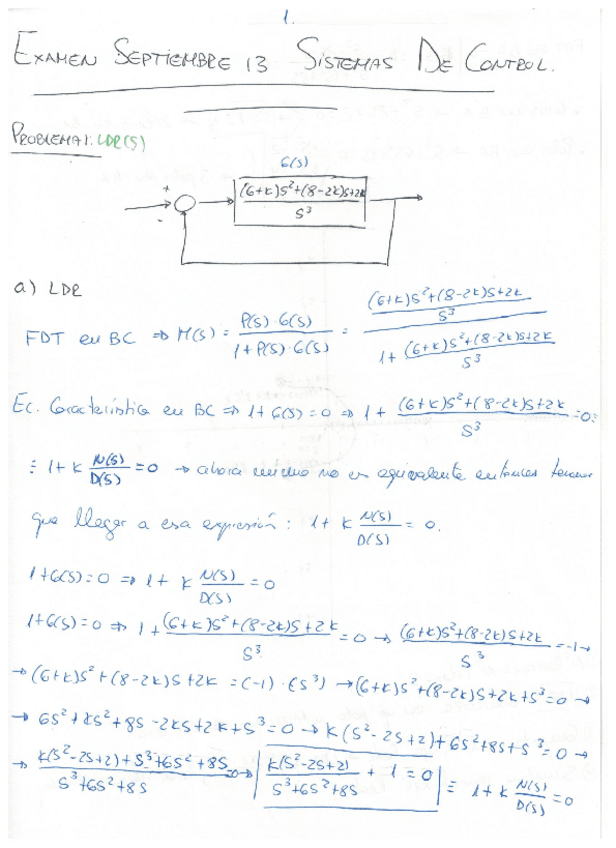 1.
EXAMEN SEPTIEMBRE 13 SISTEMAS DE CONTROL.
PROBLEMA 1: LDR(S)
G(S)
+ (6+k)S²+(8-2k)S+2k
S³
-
a) LDR
FDT en BC ⇒ M(S) = P(S)·G(S) / 1+P(S)·G(S) = (6+k)S²+(8-2k)S+2k / S³ / 1+ (6+k)S²+(8-2k)S+2k / S³
Ec. Característica en BC ⇒ 1+G(S)=0 ⇒ 1+ (6+k)S²+(8-2k)S+2k / S³ =0 ≡
≡ 1+k N(S)/D(S) =0 → ahora mismo no es equivalente entonces tenemos
que llegar a esa expresión: 1+k N(S)/D(S) = 0.
1+G(S)=0 ⇒ 1+ k N(S)/D(S) =0
1+G(S)=0 ⇒ 1+ (6+k)S²+(8-2k)S+2k / S³ =0 → (6+k)S²+(8-2k)S+2k / S³ =-1 →
→ (6+k)S²+(8-2k)S+2k =(-1)·(S³) → (6+k)S²+(8-2k)S+2k+S³=0 →
→ 6S²+kS²+8S-2kS+2k+S³=0 → k(S²-2S+2)+6S²+8S+S³=0 →
→ k(S²-2S+2)+S³+6S²+8S / S³+6S²+8S =0 → k(S²-2S+2) / S³+6S²+8S + 1 = 0 ≡ 1+k N(S)/D(S) =0